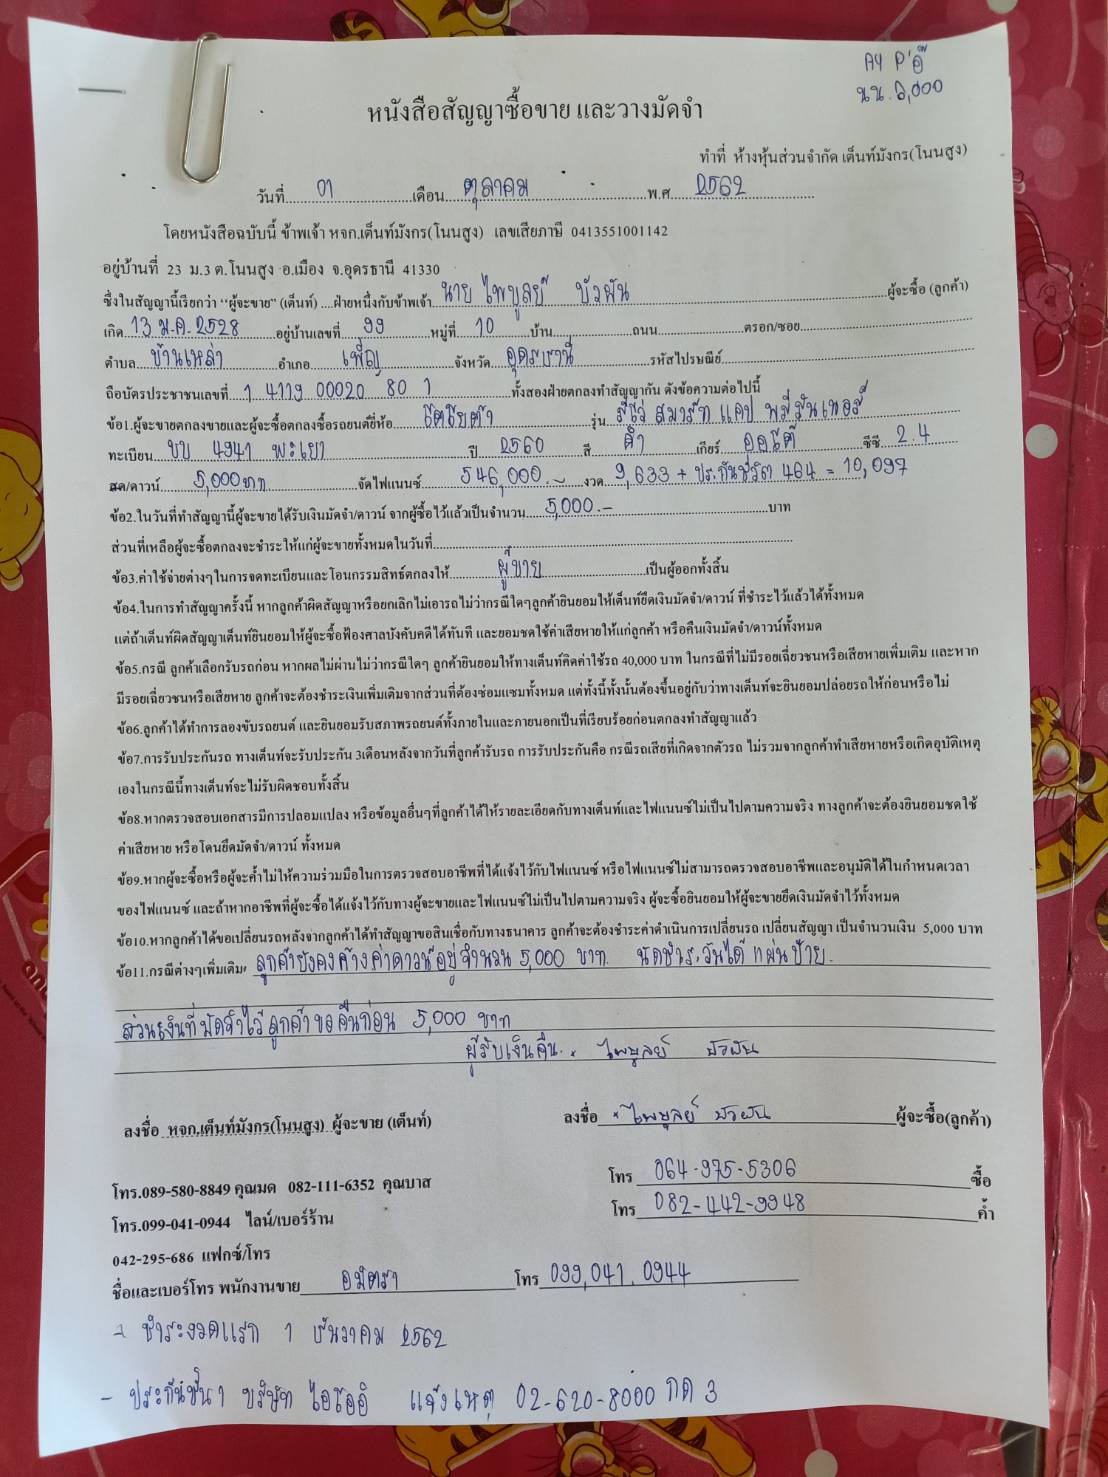 AY P'อู๊
นน. 6,000
หนังสือสัญญาซื้อขาย และวางมัดจำ
ทำที่ ห้างหุ้นส่วนจำกัด เต็นท์มังกร(โนนสูง)
วันที่ 01 เดือน ตุลาคม พ.ศ. 2562
โดยหนังสือฉบับนี้ ข้าพเจ้า หจก.เต็นท์มังกร(โนนสูง) เลขเสียภาษี 0413551001142
อยู่บ้านที่ 23 ม.3 ต.โนนสูง อ.เมือง จ.อุดรธานี 41330
ซึ่งในสัญญานี้เรียกว่า "ผู้จะขาย" (เต็นท์) ....ฝ่ายหนึ่งกับข้าพเจ้า นาย ไพบูลย์ บัวผัน ผู้จะซื้อ (ลูกค้า)
เกิด 13 ม.ค. 2528 อยู่บ้านเลขที่ 99 หมู่ที่ 10 บ้าน ถนน ตรอก/ซอย
ตำบล บ้านเหล่า อำเภอ เพ็ญ จังหวัด อุดรธานี รหัสไปรษณีย์
ถือบัตรประชาชนเลขที่ 1 4119 00020 80 1 ทั้งสองฝ่ายตกลงทำสัญญากัน ดังข้อความต่อไปนี้
ข้อ1.ผู้จะขายตกลงขายและผู้จะซื้อตกลงซื้อรถยนต์ยี่ห้อ โตโยต้า รุ่น รีโว่ สมาร์ท แคป พรีรันเนอร์
ทะเบียน บบ 4941 พะเยา ปี 2560 สี ดำ เกียร์ ออโต้ ซีซี 2.4
สด/ดาวน์ 5,000 บาท จัดไฟแนนซ์ 546,000.- งวด 9,633 + ประกันชีวิต 464 = 10,097
ข้อ2.ในวันที่ทำสัญญานี้ผู้จะขายได้รับเงินมัดจำ/ดาวน์ จากผู้ซื้อไว้แล้วเป็นจำนวน 5,000.- บาท
ส่วนที่เหลือผู้จะซื้อตกลงจะชำระให้แก่ผู้จะขายทั้งหมดในวันที่
ข้อ3.ค่าใช้จ่ายต่างๆในการจดทะเบียนและโอนกรรมสิทธ์ตกลงให้ ผู้ขาย เป็นผู้ออกทั้งสิ้น
ข้อ4.ในการทำสัญญาครั้งนี้ หากลูกค้าผิดสัญญาหรือยกเลิกไม่เอารถไม่ว่ากรณีใดๆลูกค้ายินยอมให้เต็นท์ยึดเงินมัดจำ/ดาวน์ ที่ชำระไว้แล้วได้ทั้งหมด
แต่ถ้าเต็นท์ผิดสัญญาเต็นท์ยินยอมให้ผู้จะซื้อฟ้องศาลบังคับคดีได้ทันที และยอมชดใช้ค่าเสียหายให้แก่ลูกค้า หรือคืนเงินมัดจำ/ดาวน์ทั้งหมด
ข้อ5.กรณี ลูกค้าเลือกรับรถก่อน หากผลไม่ผ่านไม่ว่ากรณีใดๆ ลูกค้ายินยอมให้ทางเต็นท์คิดค่าใช้รถ 40,000 บาท ในกรณีที่ไม่มีรอยเฉี่ยวชนหรือเสียหายเพิ่มเติม และหาก
มีรอยเฉี่ยวชนหรือเสียหาย ลูกค้าจะต้องชำระเงินเพิ่มเติมจากส่วนที่ต้องซ่อมแซมทั้งหมด แต่ทั้งนี้ทั้งนั้นต้องขึ้นอยู่กับว่าทางเต็นท์จะยินยอมปล่อยรถให้ก่อนหรือไม่
ข้อ6.ลูกค้าได้ทำการลองขับรถยนต์ และยินยอมรับสภาพรถยนต์ทั้งภายในและภายนอกเป็นที่เรียบร้อยก่อนตกลงทำสัญญาแล้ว
ข้อ7.การรับประกันรถ ทางเต็นท์จะรับประกัน 3เดือนหลังจากวันที่ลูกค้ารับรถ การรับประกันคือ กรณีรถเสียที่เกิดจากตัวรถ ไม่รวมจากลูกค้าทำเสียหายหรือเกิดอุบัติเหตุ
เองในกรณีนี้ทางเต็นท์จะไม่รับผิดชอบทั้งสิ้น
ข้อ8.หากตรวจสอบเอกสารมีการปลอมแปลง หรือข้อมูลอื่นๆที่ลูกค้าได้ให้รายละเอียดกับทางเต็นท์และไฟแนนซ์ไม่เป็นไปตามความจริง ทางลูกค้าจะต้องยินยอมชดใช้
ค่าเสียหาย หรือโดนยึดมัดจำ/ดาวน์ ทั้งหมด
ข้อ9.หากผู้จะซื้อหรือผู้จะค้ำไม่ให้ความร่วมมือในการตรวจสอบอาชีพที่ได้แจ้งไว้กับไฟแนนซ์ หรือไฟแนนซ์ไม่สามารถตรวจสอบอาชีพและอนุมัติได้ในกำหนดเวลา
ของไฟแนนซ์ และถ้าหากอาชีพที่ผู้จะซื้อได้แจ้งไว้กับทางผู้จะขายและไฟแนนซ์ไม่เป็นไปตามความจริง ผู้จะซื้อยินยอมให้ผู้จะขายยึดเงินมัดจำไว้ทั้งหมด
ข้อ10.หากลูกค้าได้ขอเปลี่ยนรถหลังจากลูกค้าได้ทำสัญญาขอสินเชื่อกับทางธนาคาร ลูกค้าจะต้องชำระค่าดำเนินการเปลี่ยนรถ เปลี่ยนสัญญา เป็นจำนวนเงิน 5,000 บาท
ข้อ11.กรณีต่างๆเพิ่มเติม ลูกค้ายังคงค้างค่าดาวน์อยู่จำนวน 5,000 บาท นัดชำระวันได้แผ่นป้าย.
ส่วนเงินที่มัดจำไว้ลูกค้าขอคืนก่อน 5,000 บาท
ผู้รับเงินคืน. ไพบูลย์ บัวผัน
ลงชื่อ หจก.เต็นท์มังกร(โนนสูง) ผู้จะขาย (เต็นท์) ลงชื่อ ไพบูลย์ บัวผัน ผู้จะซื้อ(ลูกค้า)
โทร 064-975-5306 ซื้อ
โทร.089-580-8849 คุณมด 082-111-6352 คุณบาส
โทร 082-442-9948 ค้ำ
โทร.099-041-0944 ไลน์/เบอร์ร้าน
042-295-686 แฟกซ์/โทร
ชื่อและเบอร์โทร พนักงานขาย อมิตรา โทร 099,041.0944
- ชำระงวดแรก 1 ธันวาคม 2562
- ประกันชั้น 1 บริษัท ไอโออิ แจ้งเหตุ 02-620-8000 กด 3